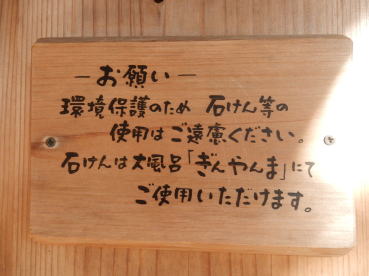 －お願い－
環境保護のため 石けん等の
使用はご遠慮ください。
石けんは大風呂「ぎんやんま」にて
ご使用いただけます。